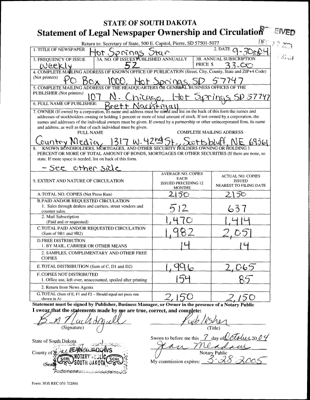 STATE OF SOUTH DAKOTA
Statement of Legal Newspaper Ownership and Circulation
Return to: Secretary of State, 500 E. Capitol, Pierre, SD 57501-5077
1. TITLE OF NEWSPAPER Hot Springs Star 2. DATE 9-30-04
3. FREQUENCY OF ISSUE 3A. NO. OF ISSUES PUBLISHED ANNUALLY 3B. ANNUAL SUBSCRIPTION
weekly 52 PRICE $ 33.00
4. COMPLETE MAILING ADDRESS OF KNOWN OFFICE OF PUBLICATION (Street, City, County, State and ZIP+4 Code)
(Not printers)
PO Box 1000, Hot Springs, SD 57747
5. COMPLETE MAILING ADDRESS OF THE HEADQUARTERS OR GENERAL BUSINESS OFFICES OF THE
PUBLISHER
107 N. Chicago, Hot Springs SD 57747
6. FULL NAME OF PUBLISHER: Brett Nachtigall
7. OWNER (If owned by a corporation, its name and address must be stated and list on the back of this form the names and
addresses of stockholders owning or holding 1 percent or more of total amount of stock. If not owned by a corporation, the
names and addresses of the individual owners must be given. If owned by a partnership or other unincorporated firm, its name
and address, as well as that of each individual must be given.
FULL NAME COMPLETE MAILING ADDRESS
Country Media 1317 W. 42nd St, Scottsbluff, NE 69361
8. KNOWN BONDHOLDERS, MORTGAGES, AND OTHER SECURITY HOLDERS OWNING OR HOLDING 1
PERCENT OR MORE OF TOTAL AMOUNT OF BONDS, MORTGAGES OR OTHER SECURITIES (If there are none, so
state. If more space is needed, list on back of this form.
- See other side
9. EXTENT AND NATURE OF CIRCULATION AVERAGE NO. COPIES EACH ISSUED PRECEDING 12 MONTHS ACTUAL NO. COPIES ISSUED NEAREST TO FILING DATE
A. TOTAL NO. COPIES (Net Press Run) 2150 2150
B. PAID AND/OR REQUESTED CIRCULATION
1. Sales through dealers and carriers, street vendors and
counter sales. 512 637
2. Mail Subscription
(Paid and or requested) 1,470 1,414
C. TOTAL PAID AND/OR REQUESTED CIRCULATION
(Sum of 9B1 and 9B2) 1,982 2,051
D. FREE DISTRIBUTION
1. BY MAIL, CARRIER OR OTHER MEANS 14 14
2. SAMPLES, COMPLIMENTARY AND OTHER FREE
COPIES
E. TOTAL DISTRIBUTION (Sum of C, D1 and D2) 1,996 2,065
F. COPIES NOT DISTRIBUTED
1. Office use, left over, unaccounted, spoiled after printing 154 85
2. Return from News Agents
G. TOTAL (Sum of E, F1 and F2 - Should equal net press run
shown in A) 2,150 2,150
Statement must be signed by Publisher, Business Manager, or Owner in the presence of a Notary Public
I swear that the statements made by me are true, correct, and complete:
Publisher
(Signature) (Title)
State of South Dakota Sworn to before me this 7 day of October 20 04
County of Jean Meadows
Notary Public
My commission expires: 3-28-2005
NOTARY
SOUTH DAKOTA